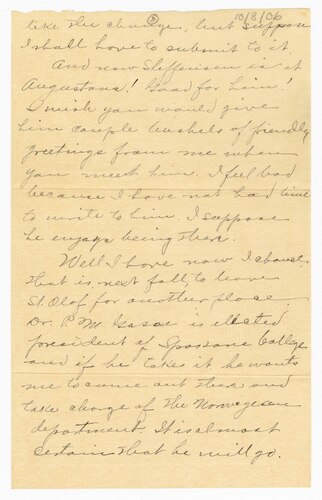 ③ 10/8/06
like the change, but suppose
I shall have to submit to it.
And now Steffensen is at
Augustana! Good for him!
I wish you would give
him couple bushels of friendly
greetings from me when
you meet him. I feel bad
because I have not had time
to write to him. I suppose
he enjoys being there.
Well I have now I chance,
that is, next fall, to leave
St. Olaf for another place.
Dr. P. M. is elected
president of Spokane College
and if he takes it he wants
me to come out there and
take charge of the Norwegian
department. It is almost
certain that he will go.